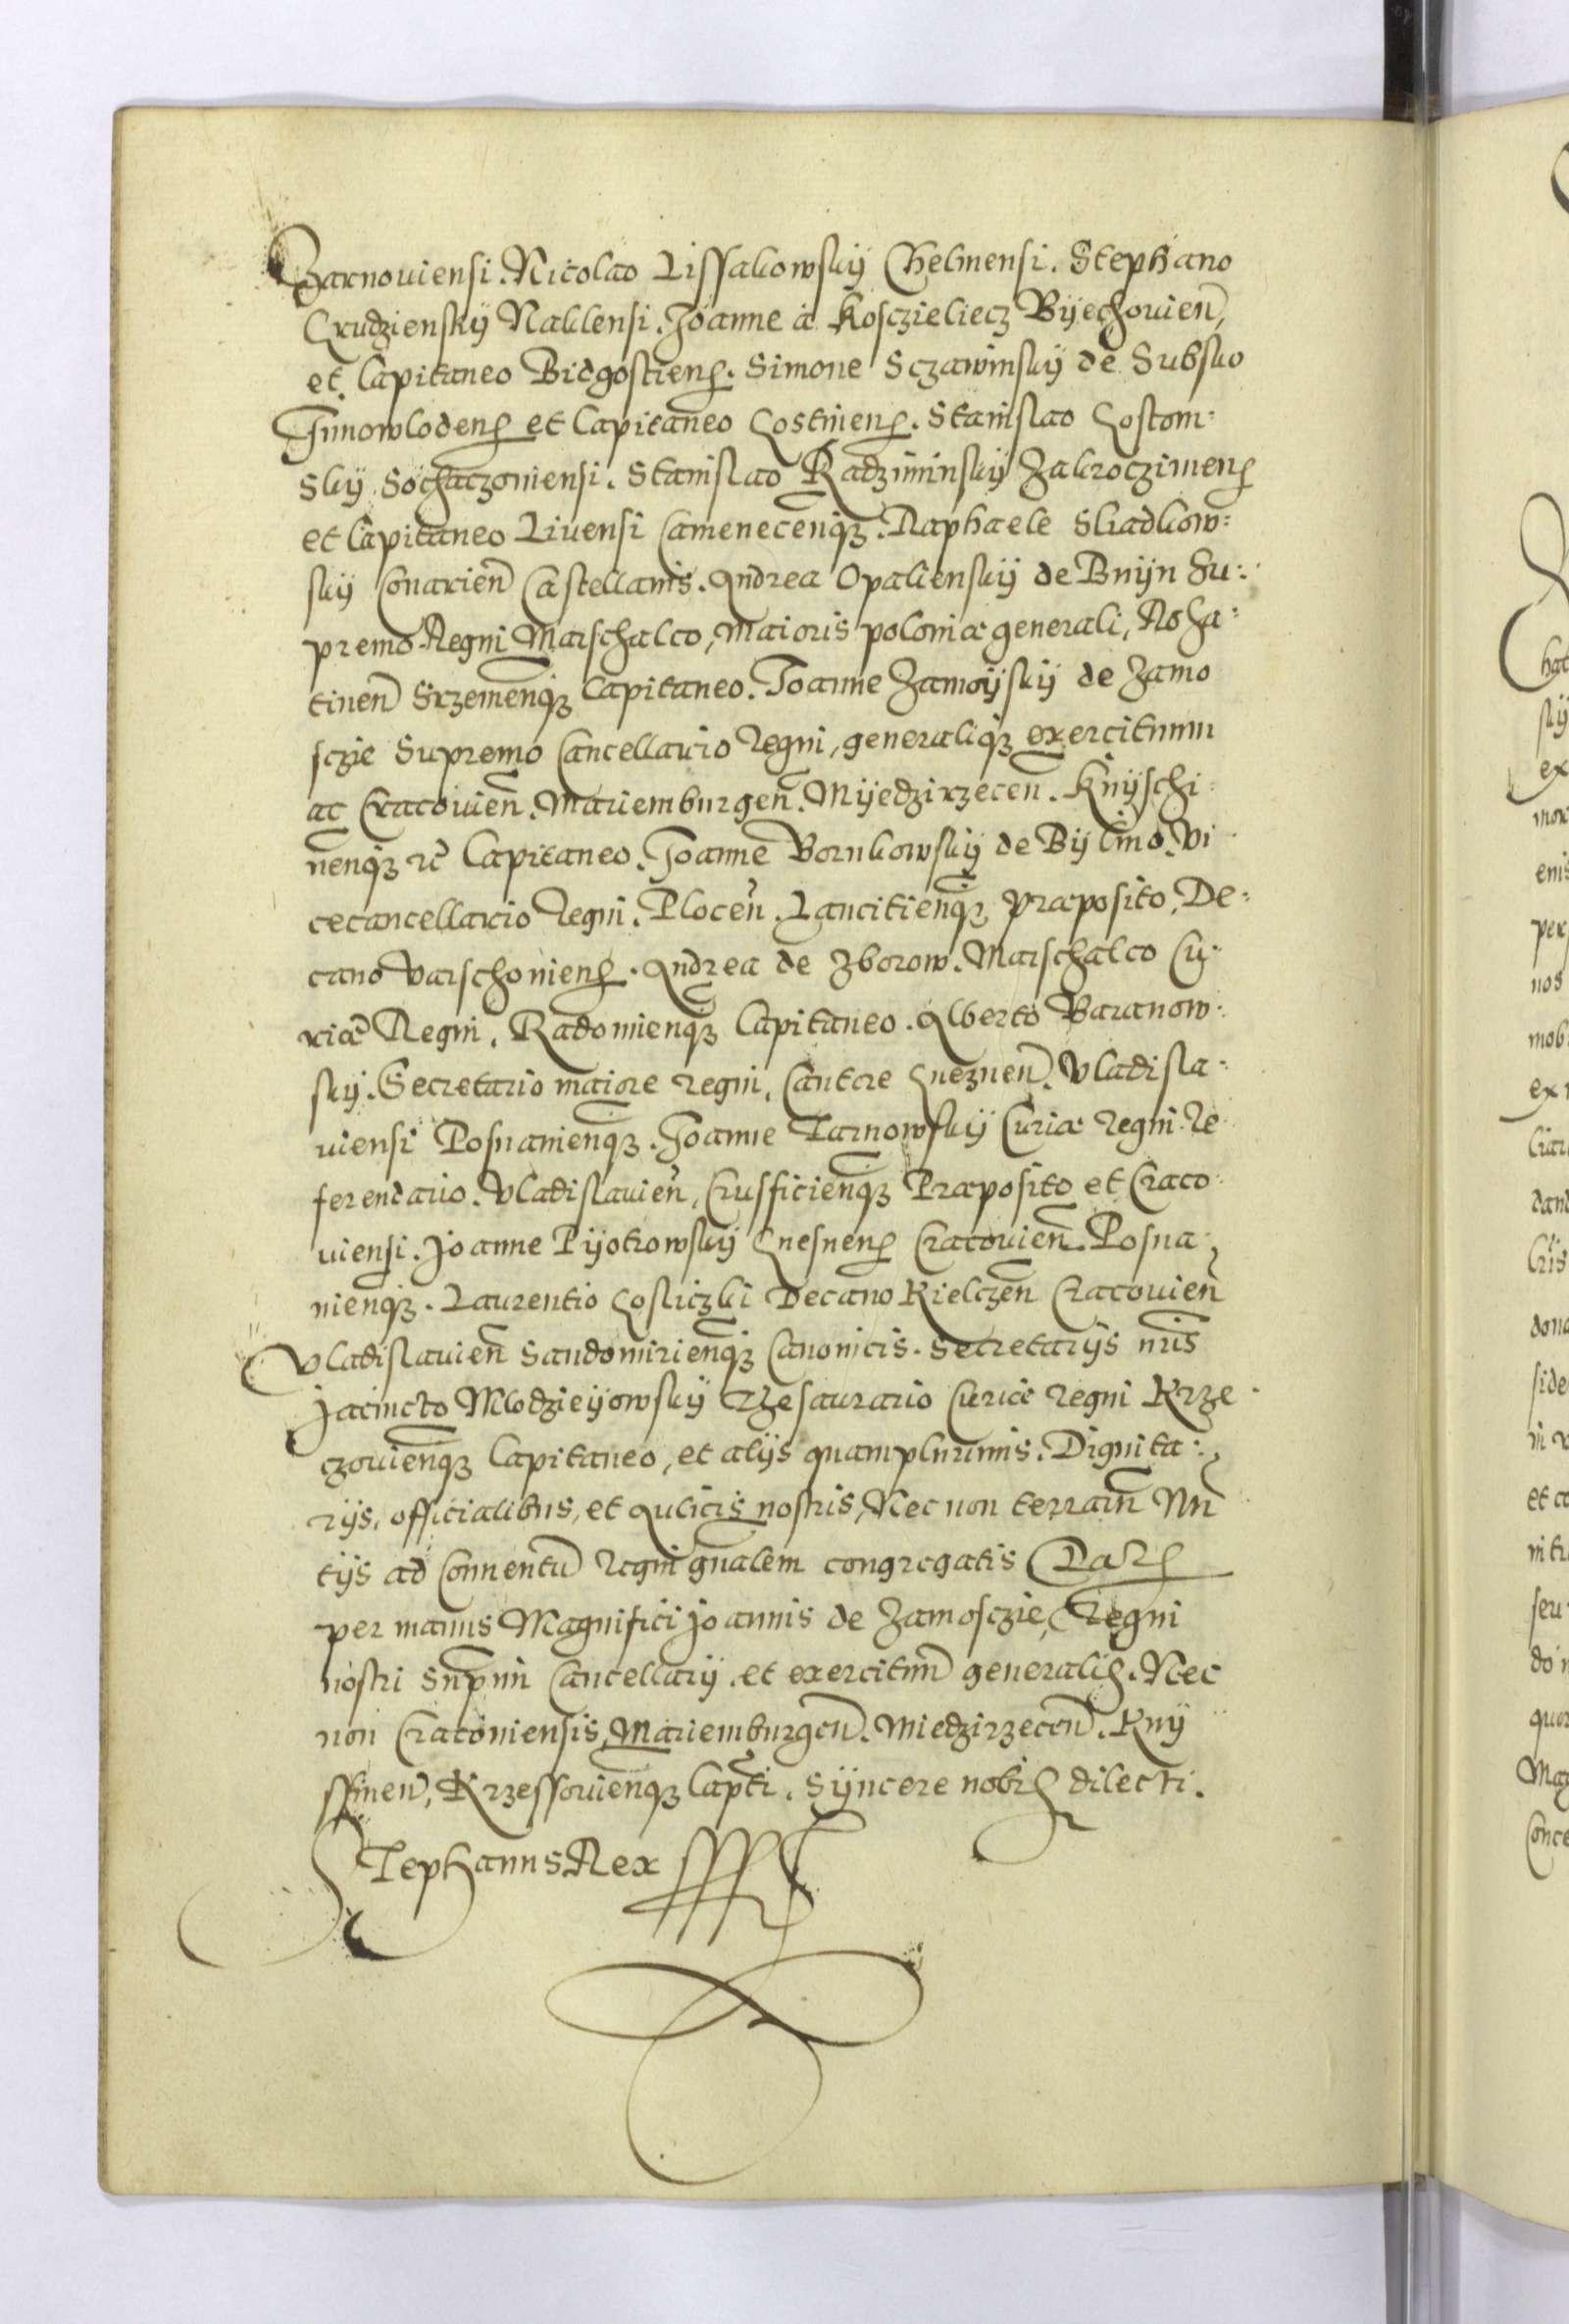 Zarnouiensi. Nicolao Lissakowskÿ Chelmensi. Stephano
Grudzienskÿ Naklensi. Joanne à Kosczieliecz Bÿechouień,
et Capitaneo Bidgostienș. Simone Sczawinskÿ de Subsko
Jnnowlodenș et Capitaneo Gostinenș. Stanislao Gostom:
skÿ Sochaczouiensi. Stanislao Radziminskÿ Zakroczimenș
et Capitaneo Liuensi Camenecenq̃ꝫ. Raphaele Sliadkow:
skÿ Conarień Castellanis. Andrea Opalienskÿ de Bnÿn Su:
premo Regni Marschalco, Maioris poloniæ generali, Roha:
tineñ Srzemenq̃ꝫ Capitaneo. Joanne Zamoÿskÿ de Zamo
sczie Supremo Cancellario Regni, generaliqꝫ exercituum
ac Cracouień. Mariemburgeñ. Mÿedzirzeceñ. Knÿschi:
nenqꝫ rc̃ Capitaneo. Joanne Borukowskÿ de Bÿlino. Vi
cecancellario Regni. Ploceñ. Lancitienq̃ꝫ præposito, De:
cano Varschouienș. Andrea de Zborow. Marschalco Cu:
riæ Regni. Radomienq̃ꝫ Capitaneo. Alberto Baranow:
skÿ. Secretario maiore regni, Cantore Gnezneñ. Vladisla:
uiensi Posnanienq̃ꝫ. Joanne Tarnowskÿ Curiæ regni Re
ferendario. Vladislauieñ, Crusficienq̃ꝫ Præposito et Craco:
uiensi. Joanne Pÿotrowskÿ Gnesnenș Cracouieñ. Posna:
nienq̃ꝫ. Laurentio Gosliczki Decano Kielczeñ Cracouieñ
Vladislauieñ Sandomirienq̃ꝫ Canonicis. Secretarÿs nr̃is
Jacincto Mlodzieÿowskÿ Thesaurario Curiæ regni Krze
czouienq̃ꝫ Capitaneo, et alÿs quamplurimis. Dignita:
rÿs, officialibus, et Aulicis nostris, Nec non terrarũ Nũ
tÿs ad Conuentũ regni gñalem congregatis Datș
per manus Magnifici Joannis de Zamosczie, Regni
nostri Sup̃mi Cancellarÿ. et exercituũ generalis. Nec
non Cracouiensis, Mariemburgeñ. Miedzirzeceñ. Knÿ
ssineñ, Krzessouienq̃ꝫ Capt̃i. Sÿncere nobis dilecti.
Stephanus Rex